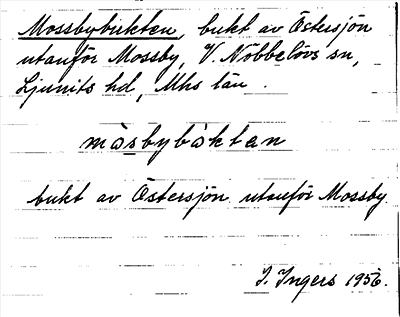 Mossbybukten, bukt av Östersjön
utanför Mossby, V. Nöbbelövs sn,
Ljunits hd, Mhs län.
måsbybåktan
bukt av Östersjön utanför Mossby
I. Ingers 1956.